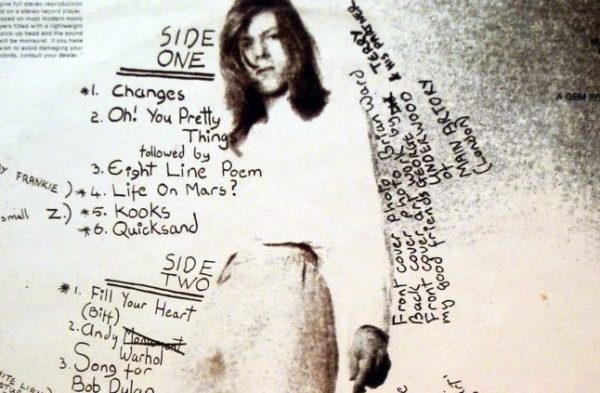 give full stereo reproduction
on a stereo record player.
played on most modern mono
players fitted with a lightweight
pick-up head and the sound
will be monaural. If you have
wish to avoid damaging your
records, consult your dealer.
SIDE
ONE
*1. Changes
2. Oh! You Pretty
Things
followed by
3. Eight Line Poem
FRANKIE ) *4. Life On Mars?
small Z.) *5. Kooks
*6. Quicksand
SIDE
TWO
*1. Fill Your Heart
(Biff)
2. Andy
Warhol
3. Song for
Bob Dylan
Front cover photo Brian Ward
Back cover photo by
Front cover
my good friends
GEORGE UNDERWOOD
of
MAIN ARTORY
(London)
TERRY
& HIS PARTNER
A GEM